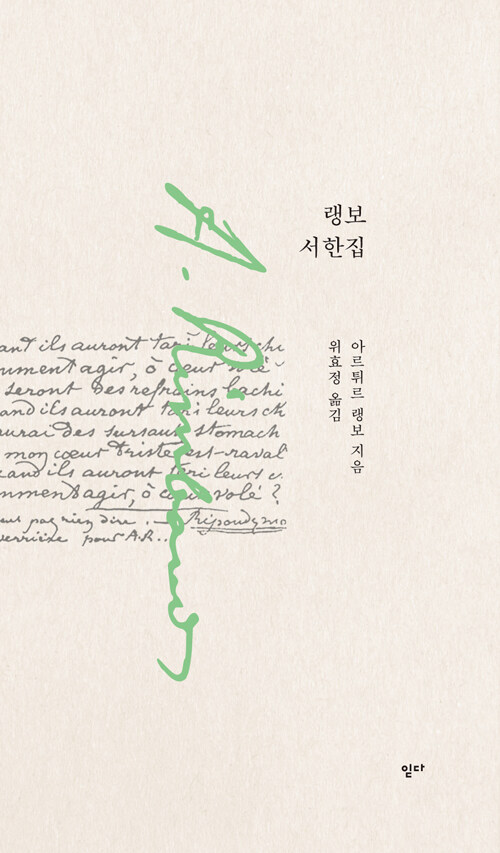 랭보
서한집
아르튀르 랭보 지음
위효정 옮김
A. Rimbaud
ant ils auront tari leurs chi
mment agir, ô cœur volé
seront des refrains bachi
and ils auront tari leurs ch
aurai des sursauts stomach
mon cœur triste est raval
uand ils auront tari leurs c
mment agir, ô cœur volé ?
eut pas rien dire. — Répondymo
derrière pour A.R..
읻다